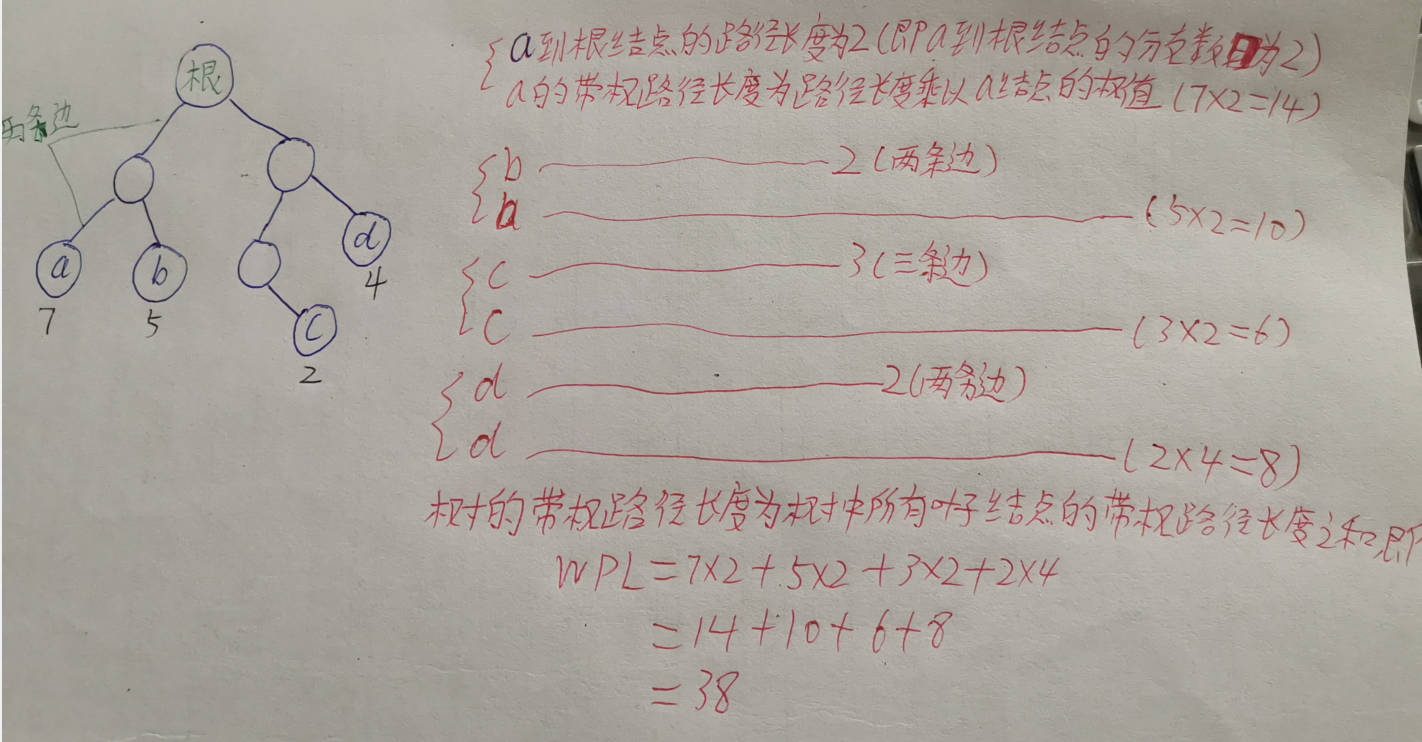 根
两条边
a
b
d
c
7
5
4
2
a到根结点的路径长度为2(即a到根结点的分支数为2)
a的带权路径长度为路径长度乘以a结点的权值(7×2=14)
b 2(两条边)
b (5×2=10)
c 3(三条边)
c (3×2=6)
d 2(两条边)
d (2×4=8)
树的带权路径长度为树中所有叶子结点的带权路径长度之和,即
WPL=7×2+5×2+3×2+2×4
=14+10+6+8
=38